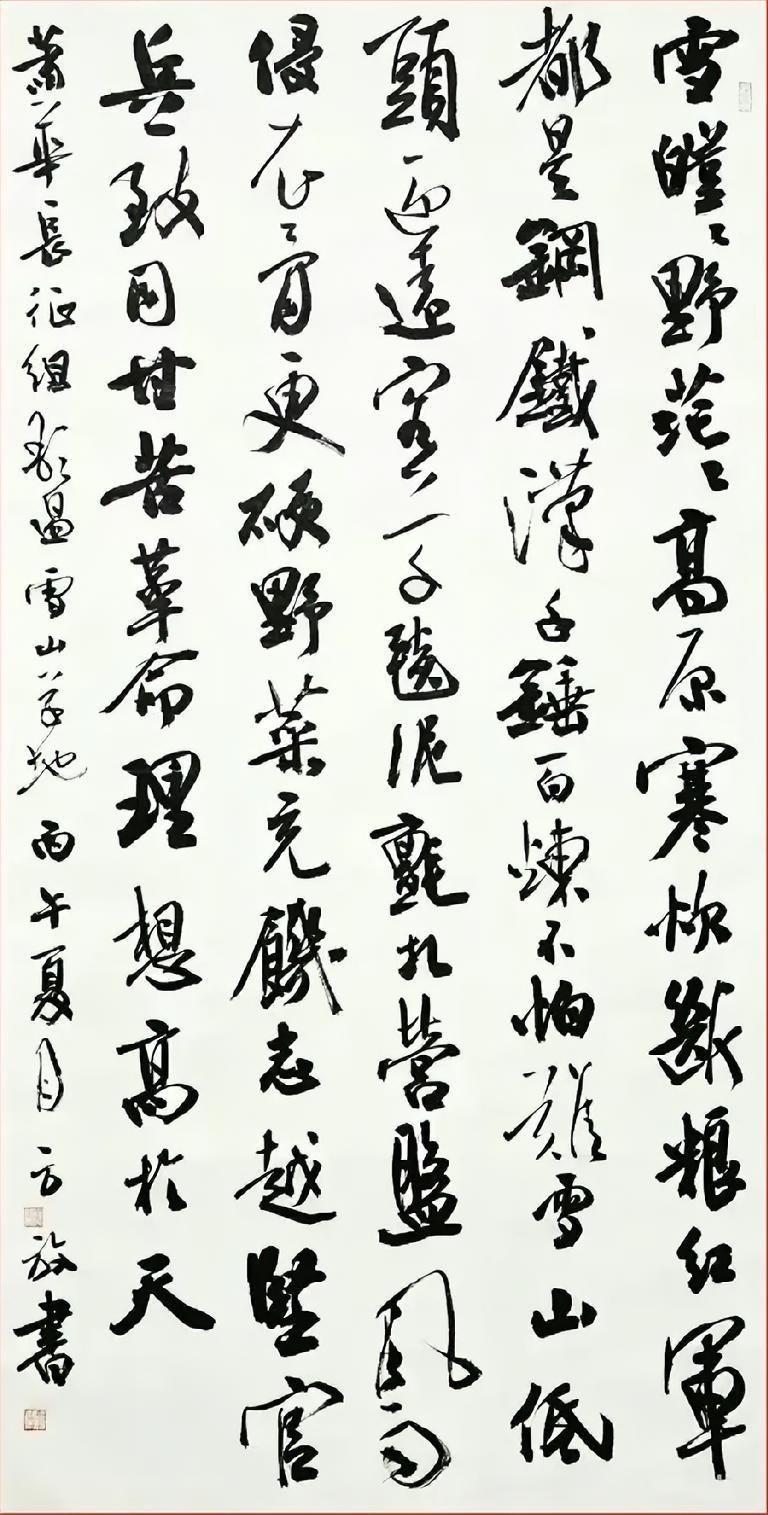 雪皚〻野茫〻高原寒炊斷粮紅軍
都是鋼鐵漢千錘百煉不怕難雪山低
頭迎遠客草毯泥氈扎營盤風雨
侵衣骨更硬野菜充饑志越堅官
兵致同甘苦革命理想高於天
蕭華長征組歌過雪山草地丙午夏月方放書